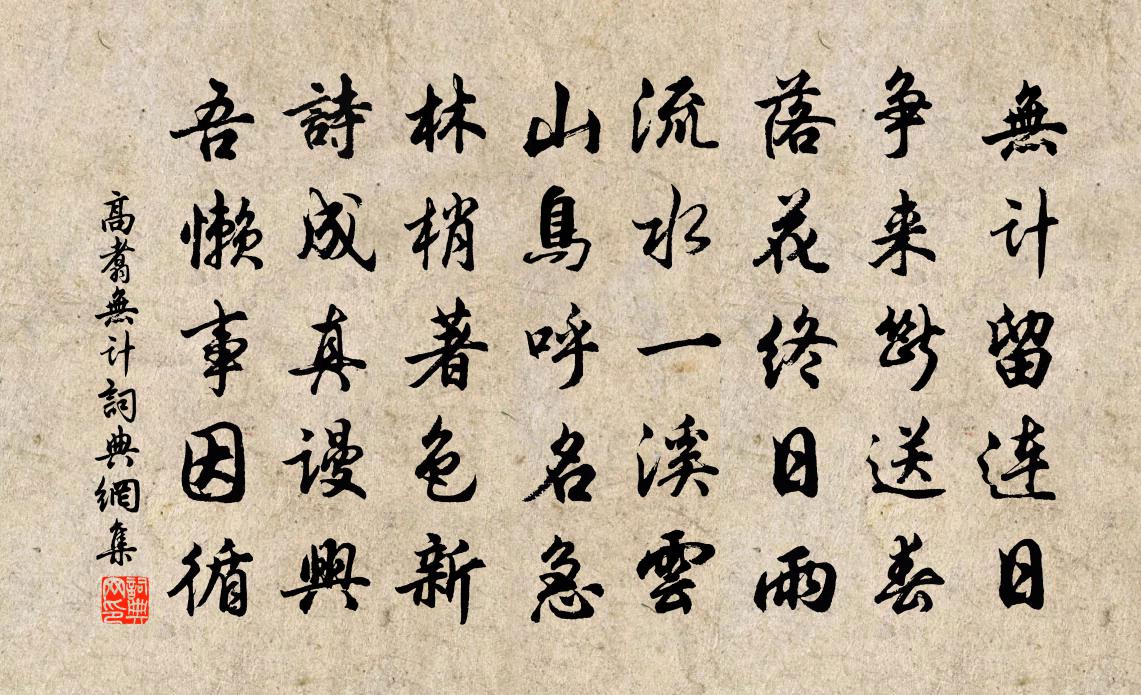 無計留連日
争来斷送春
落花終日雨
流水一溪雲
山鳥呼名急
林梢著色新
詩成真謾興
吾懶事因循
高翥無計詞典網集
詞典網印